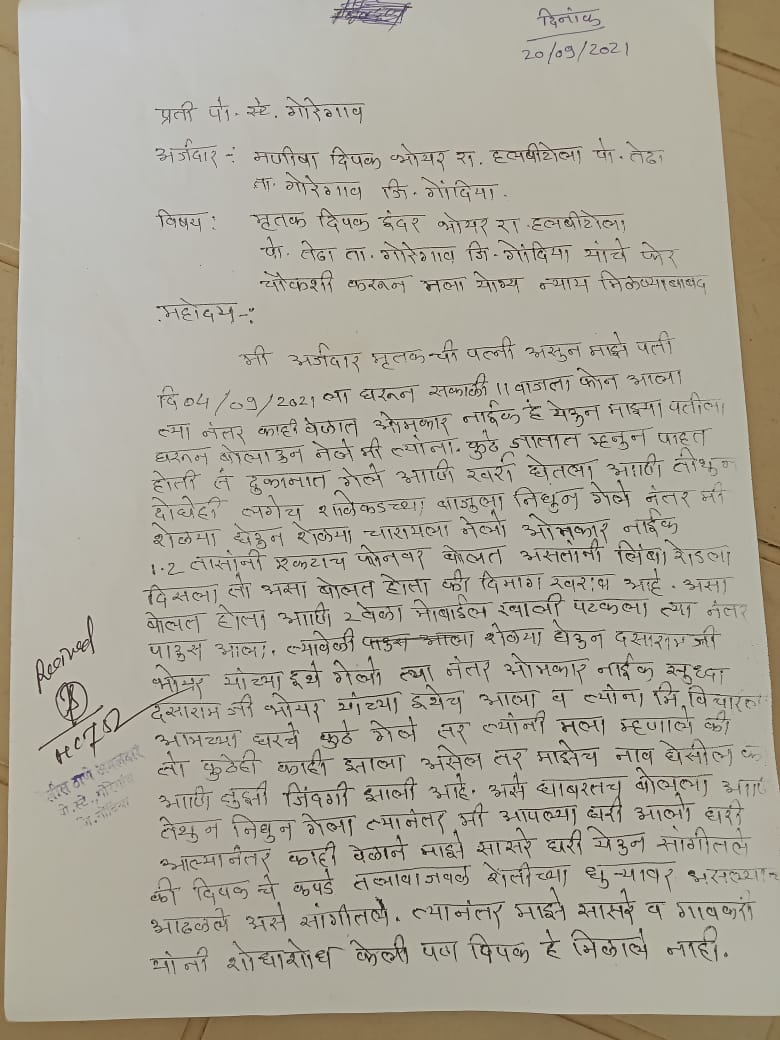 दिनांक
20/09/2021
प्रती पो. स्टे. गोरेगाव
अर्जदार :- मणीषा दिपक भोयर रा. हलबीटोला पो. तेढा
ता. गोरेगाव जि. गोंदिया.
विषय : मृतक दिपक इंदर भोयर रा. हलबीटोला
पो. तेढा ता. गोरेगाव जि. गोंदिया यांचे फेर
चौकशी करून मला योग्य न्याय मिळण्याबाबद
महोदय -:
मी अर्जदार मृतकची पत्नी असुन माझे पती
दि 04/09/2021 ला घरून सकाळी 11 वाजता फोन आला
त्या नंतर काही वेळात ओमकार नाईक हे येऊन माझ्या पतीला
घरून बोलाउन नेले मी त्यांना. कुठे जातात म्हनुन पाहत
होती तं दुकानात गेले आणि खर्रा घेतला आणि तीथुन
दोघेही लगेच बाजुला निघुन गेले नंतर मी
शेळ्या घेऊन शेळ्या चारायला गेलो ओमकार नाईक
1.2 तासांनी एकटाच फोनवर बोलत असतानी लिंबा रोडला
दिसला तो असा बोलत होता की दिमाग खराब आहे. असा
बोलत होता आणि 2 वेळा मोबाईल खाली पटकला त्या नंतर
पाऊस आला. त्यावेळी शेळ्या घेऊन दसाराम जी
भोयर यांच्या इथे गेलो त्या नंतर ओमकार नाईक सुध्दा
दसाराम जी भोयर यांच्या इथेच आला व त्यांना मि विचारल
आमच्या घरचे कुठे गेले तर त्यांनी मला म्हणाले की
तो कुठेही काही झाला असेल तर माझेच नाव घेसील का
आणि तुझी जिंदगी झाली आहे. असे घाबरतच बोलला आणि
तेथुन निघुन गेला त्यानंतर मी आपल्या घरी आलो घरी
आल्यानंतर काही वेळाने माझे सासरे घरी येऊन सांगीतले
की दिपक चे कपडे तलावाजवळ शेतीच्या धुऱ्यावर असल्याच
आढळले असे सांगीतले. त्यानंतर माझे सासरे व गावकरी
यांनी शोधाशोध केली पण दिपक हे मिळाले नाही.
Received
HC 752